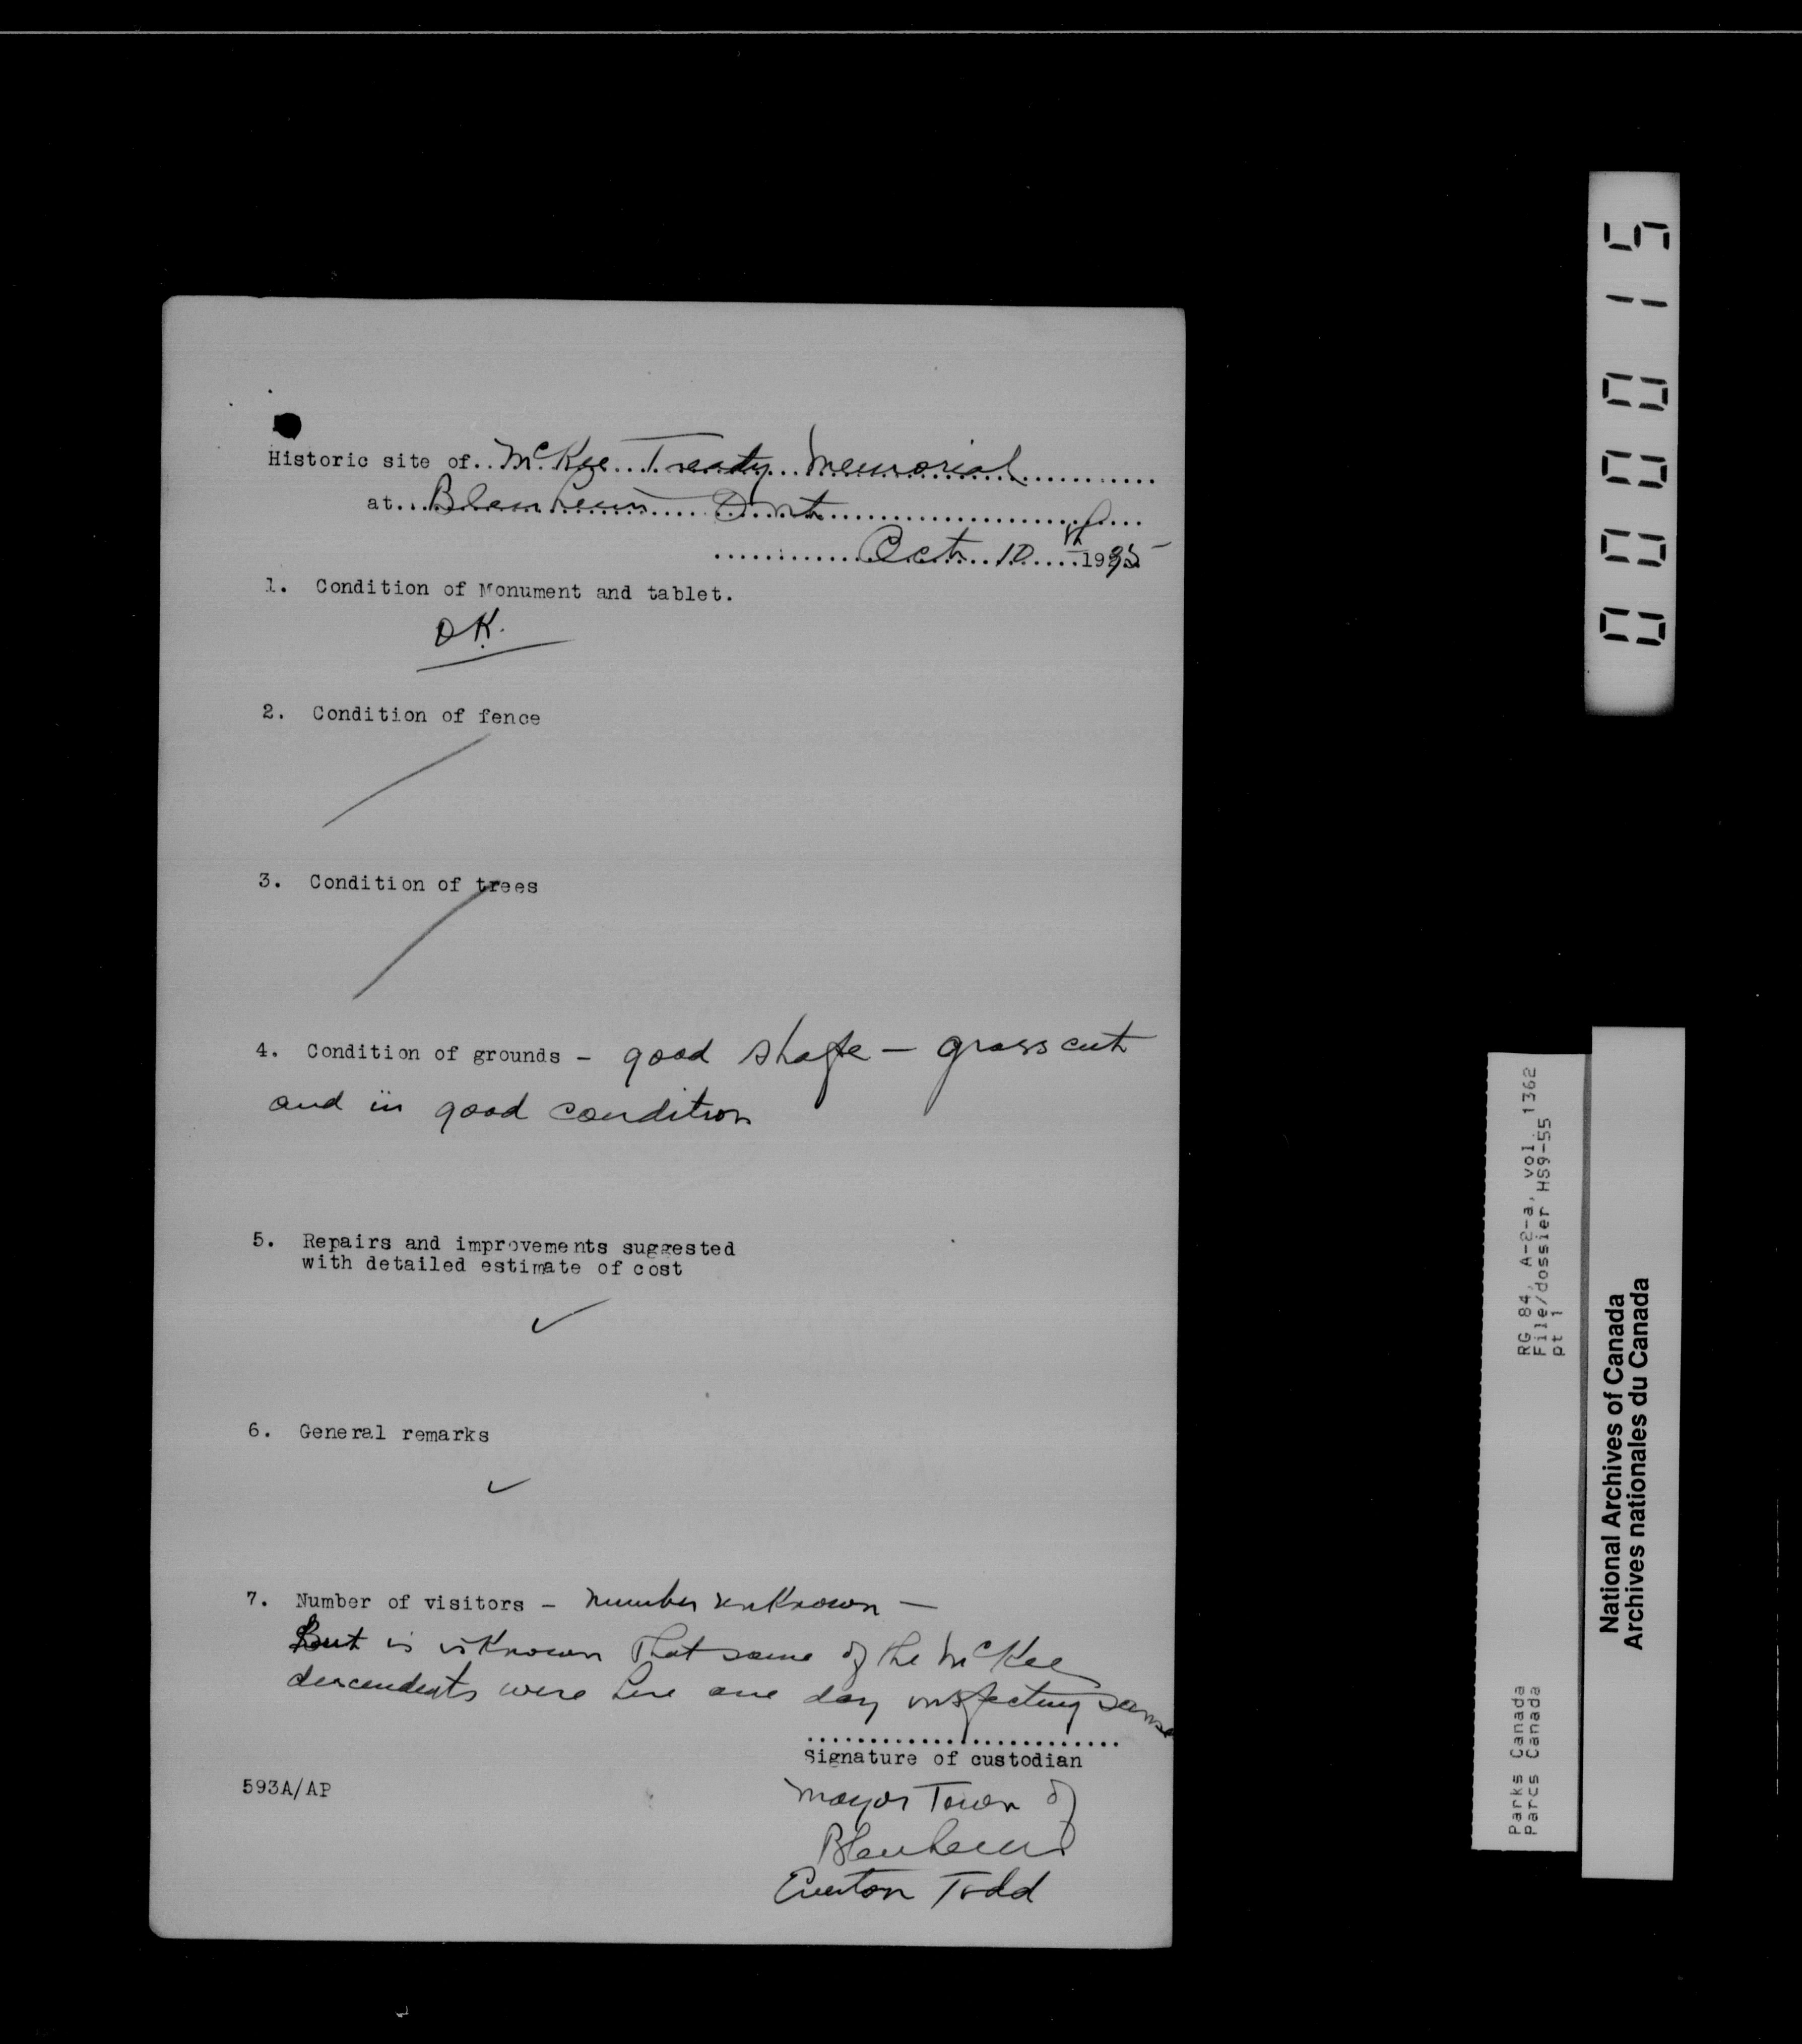 Historic site of.. McKee Treaty Memorial
at.. Blenheim Ont
Oct. 10th 1935
1. Condition of Monument and tablet.
OK.
2. Condition of fence
3. Condition of trees
4. Condition of grounds - good shape - grass cut
and in good condition
5. Repairs and improvements suggested
with detailed estimate of cost
✓
6. General remarks
✓
7. Number of visitors - number unknown -
But is is known that some of the McKee
descendents were here one day inspecting same
Signature of custodian
593A/AP
Mayor Town of
Blenheim
Everton Todd
000015
RG 84, A-2-a, vol. 1362
File/dossier HS9-55
pt 1
Parks Canada
Parcs Canada
National Archives of Canada
Archives nationales du Canada